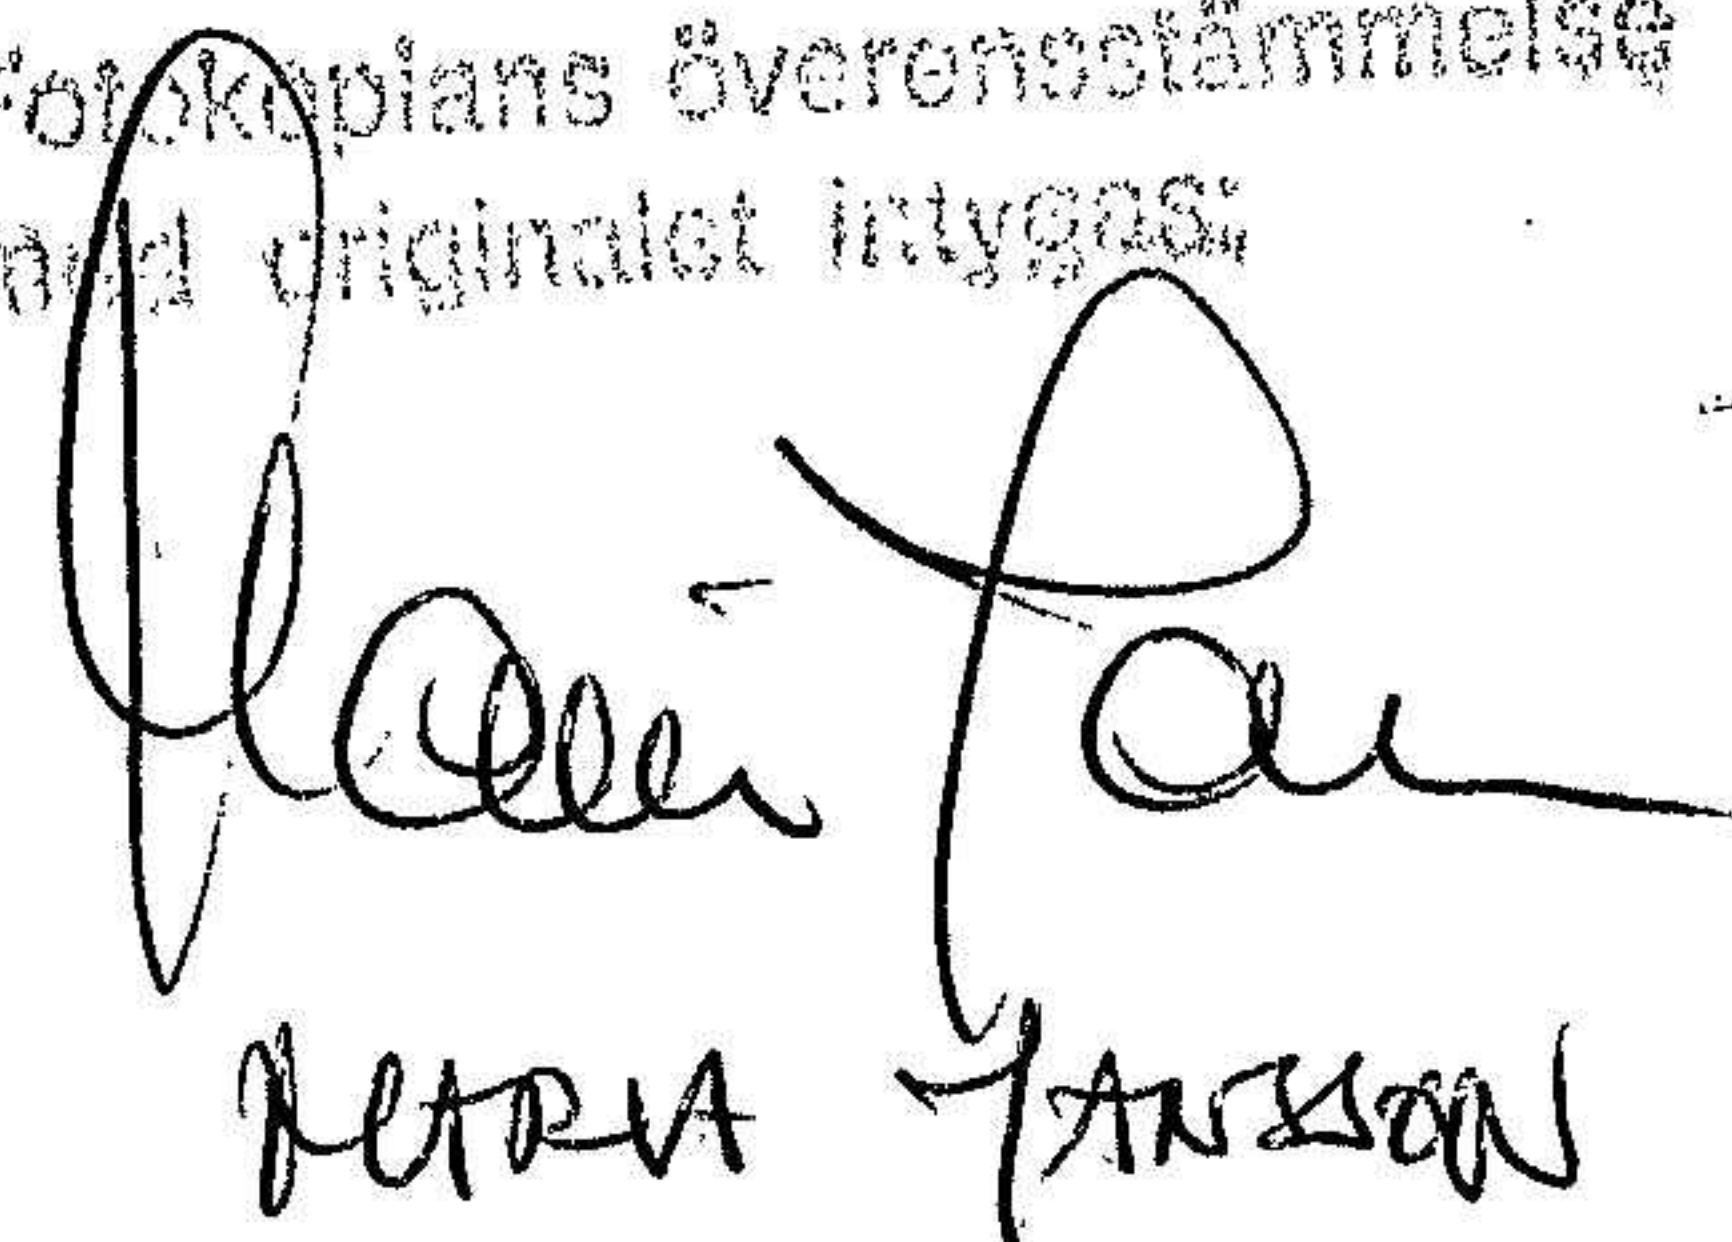 Fotokopians överensstämmelse
med originalet intygas:
Maria Jan
MARIA JANSSON